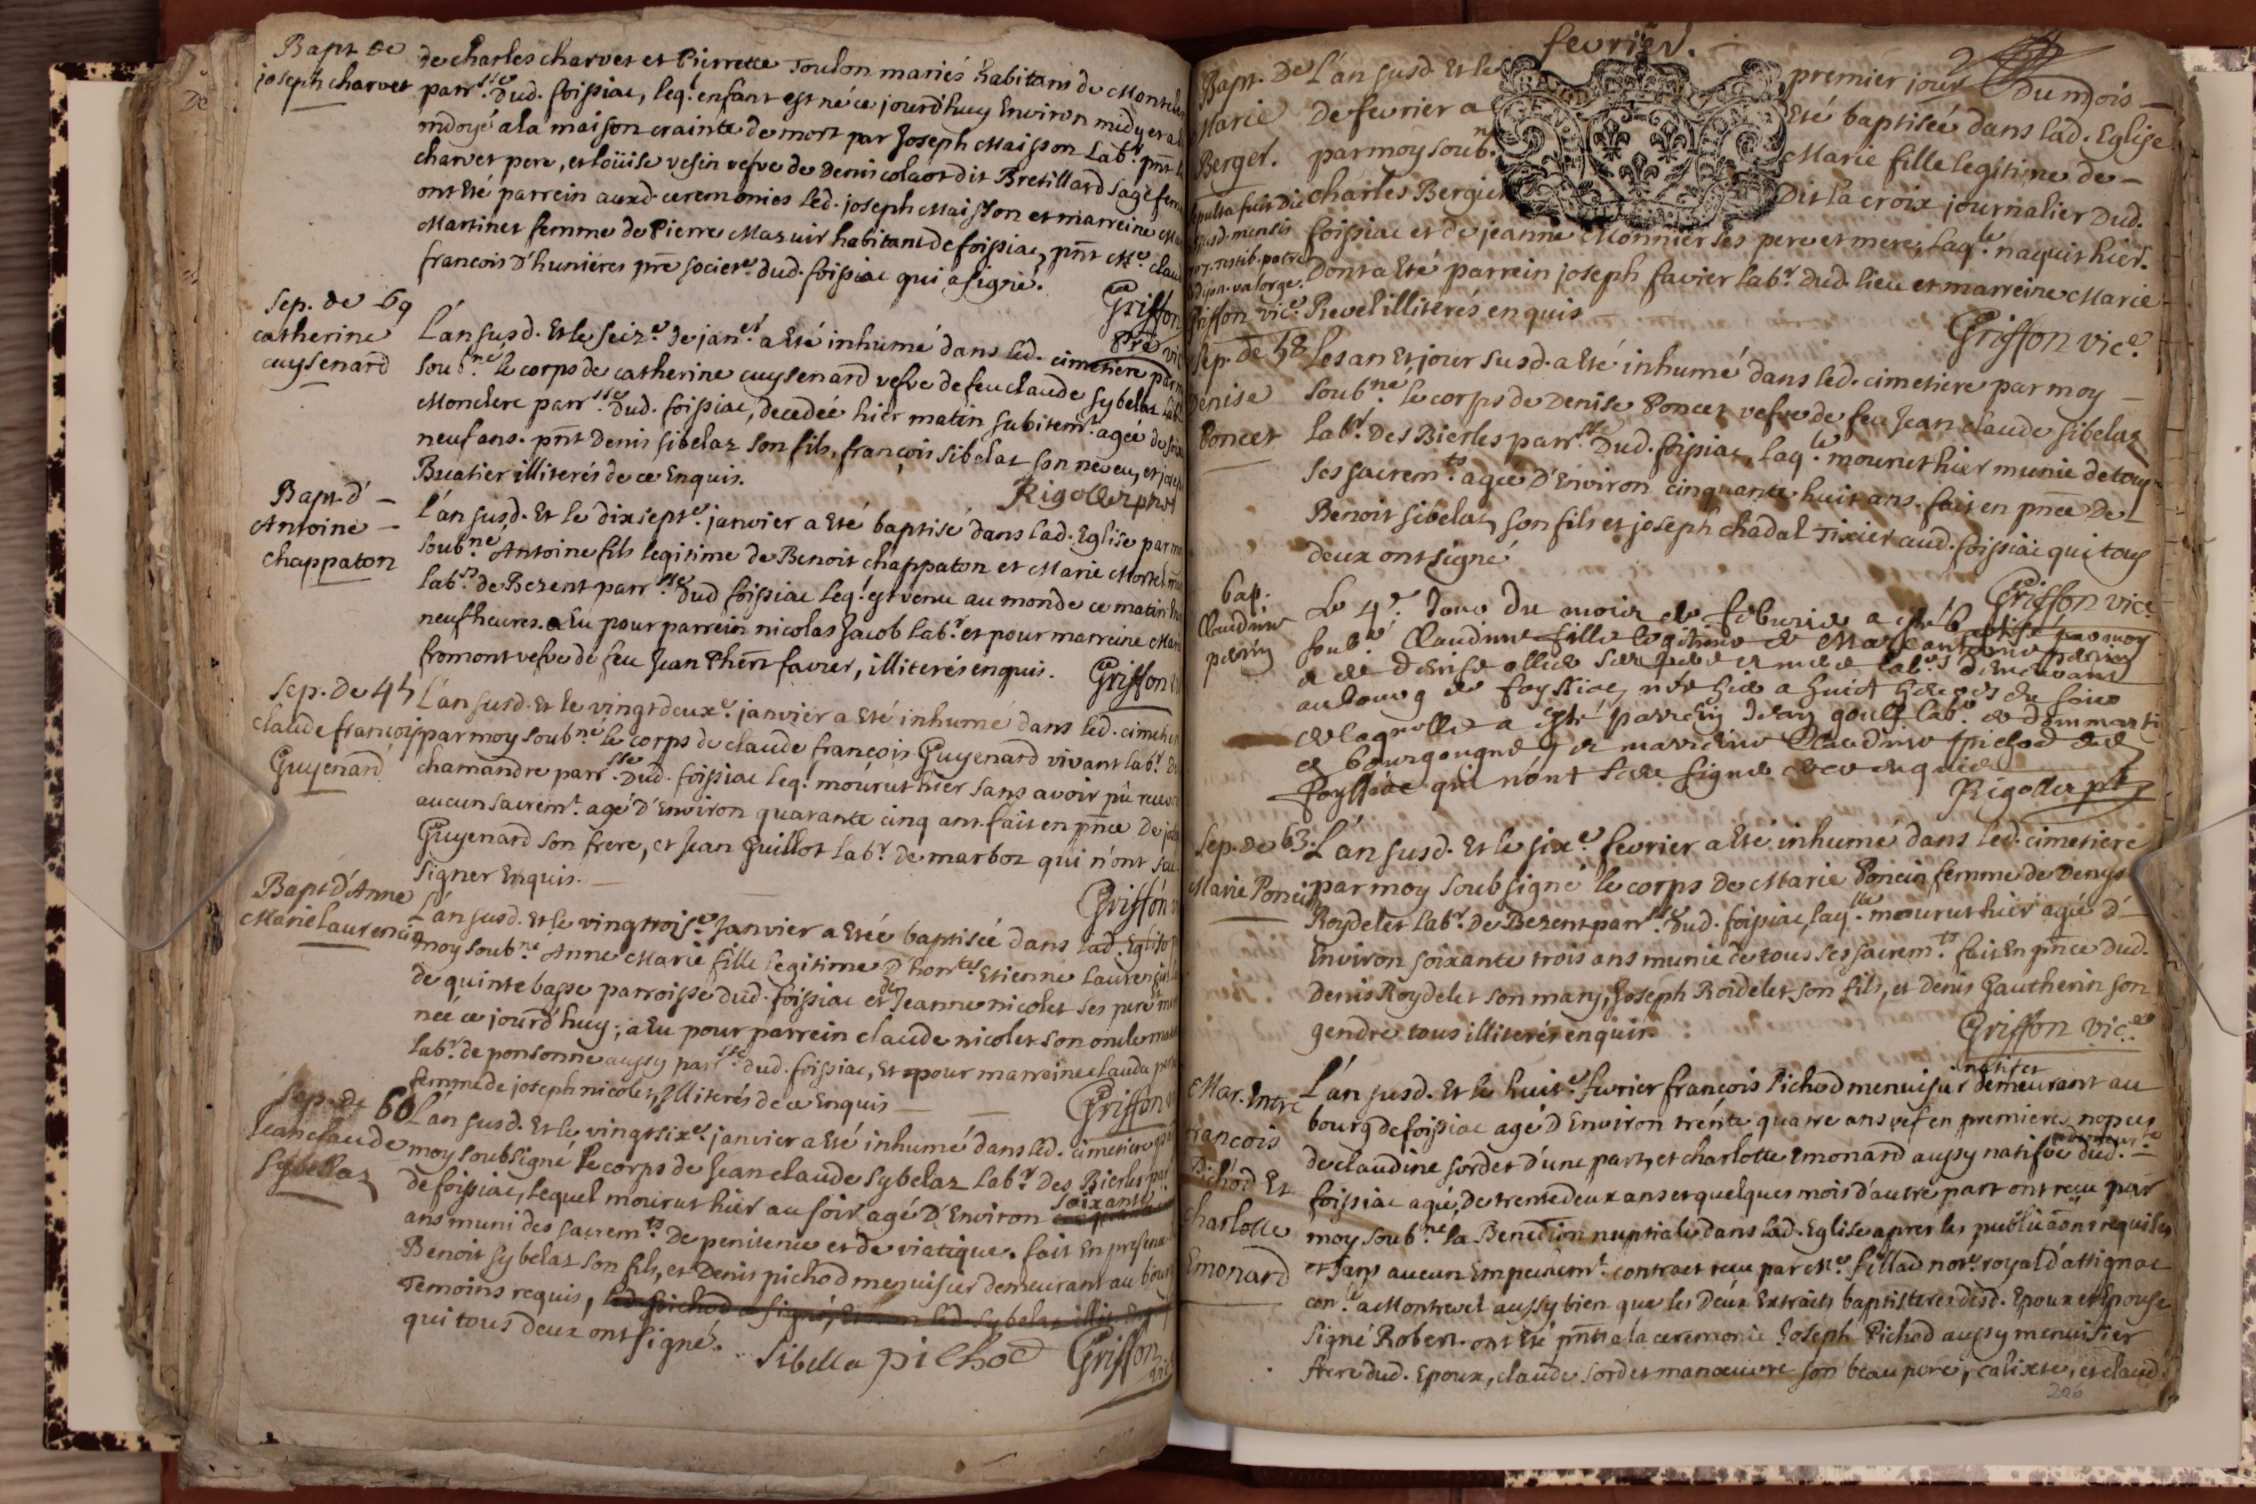 Bapt de
joseph charvet
de charles charvet et Pierrette Toulon mariés habitans de
parr.sse Dud. foissiac, leq.l enfant est né ce jourd'huy Environ midy et a
ondoyé a la maison crainte de mort par Joseph Maisson Lab.r pñt
charvet pere, et loüise vesin vefve de Denis colaot dit Bretillard sage
ont Eté parrein auxd. ceremonies led. joseph Maisson et marreine
Martinet femme de Pierre Mazuir habitant de foissiac, pñt M.e
francois D'hunieres prẽ societ.e dud. foissiac qui a signé.
Griffon
prẽ vic
Sep. de 69
catherine
cuysenard
L'an susd. Et le seiz.e de jan.er a Eté inhumé dans led. cimetiere par
soub.né le corps de catherine cuysenard vefve de feu claude sybelaz
Monclerc parr.sse Dud. foissiac, decedée hier matin subitem.t agée de
neuf ans. pñt Denis sibelaz son fils, françois sibelaz son neveu, et
Buatier illiterés de ce Enquis.
Rigollet
Bapt. d'
Antoine
chappaton
L'an susd. Et le dix sept.e janvier a Eté baptisé dans lad. Eglise par
soub.né Antoine fils legitime de Benoit chappaton et Marie
lab.rs de Bezent parr.sse Dud foissiac leq.l est venu au monde ce matin
neuf heures. a Eu pour parrein nicolas Jacob lab.r et pour marreine
fromont vefve de feu Jean favier, illiterés enquis.
Griffon
Sep. de 45
claude françois
Guyenard
L'an susd. Et le vingt deux.e janvier a Eté inhumé dans led.
par moy soub.né le corps de claude françois Guyenard vivant lab.r
chamandre parr.sse Dud. foissiac leq.l mourut hier sans avoir pû
aucun sacrem.t agé D'Environ quarante cinq ans. fait en pñce De
Guyenard son frere, et Jean Guillot lab.r de marboz qui n'ont
signer Enquis.
Griffon
Bapt D'Anne
Marie laurencin
L'an susd. Et le vingt trois.e Janvier a Etéé baptisée dans lad. Eglise
moy soub.né Anne Marie fille legitime D'hon.tes Etienne
de quinte basse parroisse dud. foissiac et de Jeanne nicolet ses pere
née ce jourd'huy; a Eu pour parrein claude nicolet son oncle
lab.r de ponsonne aussy parr.sse dud. foissiac, Et pour marreine clauda
femme de joseph nicolet, Illiterés de ce Enquis
Griffon
Sep. de 60
Jean claude
Sybellaz
L'an susd. Et le vingt six.e janvier a Eté inhumé dans led. cimetiere
moy soubsigné le corps de Jean claude sybelaz lab.r Des Bierles
de foissiac, lequel mourut hier au soir agé D'Environ soixante
ans muni des sacrem.ts De penitence et de viatique. fait En presence
Benoit sybelaz son fils, et Denis pichod menuisier demeurant au
Temoins requis, led. pichod a signé, Et non led. sybelaz
qui tous deux ont signé.
Sibella pichod Griffon
fevrier.
Bapt. De
Marie
Berger.
L'an susd. Et le premier jour Du mois
De fevrier a Eté baptisée dans lad. Eglise
par moy soub.né Marie fille legitime de
charles Bergier Dit la croix journalier Dud.
foissiac et de jeanne Monnier ses pere et mere; laq.le naquit hier.
Dont a Eté parrein joseph favier lab.r Dud. lieu et marreine Marie
Griffon vic.e
Revel illiterés enquis
Griffon vic.e
Sep. de 58
Denise
Poncet
Les an Et jour susd. a Eté inhumé dans led. cimetiere par moy
soub.né le corps de Denise Poncet vefve de feu Jean claude sibelaz
lab.r Des Bierles parr.sse Dud. foissiac, laq.le mourut hier munie de tous
ses sacrem.ts agée D'Environ cinquante huit ans. fait en pñce De
Benoit sibelaz son fils et joseph chadal Tixier aud. foissiac qui tous
deux ont signé
Griffon vic.e
bap.
Claudine
perrin
Le 4.e Jour du mois de feburier a esté baptisé par moy
soub.né Claudine fille legitime de Marc antoine perrin
et de Denise ses pere et mere lab.rs demeurant
au bourg de foyssiac née hier a huict heures du soir
de laquelle a esté parrein Jean lab.r de dommarti
et bourgougne et marreine Claudine pichod de
foyssiac qui n'ont sceu signer de ce enquis
Rigollet pt
Sep. de 63.
Marie Poncin
L'an susd. Et le six.e fevrier a Eté inhumé dans led. cimetiere
par moy soubsigné le corps De Marie Poncin femme de Denys
Roydelet lab.r De Bezent parr.sse Dud. foissiac, laq.lle mourut hier agée d'
Environ soixante trois ans munie de tous ses sacrem.ts fait En pñce Dud.
Denis Roydelet son mary, Joseph Roidelet son fils, et Denis Gautherin son
gendre tous illiterés enquis.
Griffon vic.e
Mar. Entre
françois
Pichod Et
charlotte
Emonard
L'an susd. Et le huit.e fevrier françois Pichod menuisier natif et demeurant au
bourg de foissiac agé D'Environ trente quatre ans vef en premieres nopces
de claudine sordet d'une part, et charlotte Emonard aussy natifve et demeur.te dud.
foissiac agée, De trente deux ans et quelques mois d'autre part ont reçu par
moy soub.né la Benediction nuptiale dans lad. Eglise apres les publicãons requises
et sans aucun Empechem.t contract recu par M.e fillad not.e royal d'attignat
con.lé a Montrevel aussy bien que les Deux Extraits baptisteres desd. Epoux et Epouse
signé Robert. ont Eté pñts a la ceremonie Joseph Pichod aussy menuisier
frere dud. Epoux, claude sordet manœuvre son beau pere, calixte, et claud.
206